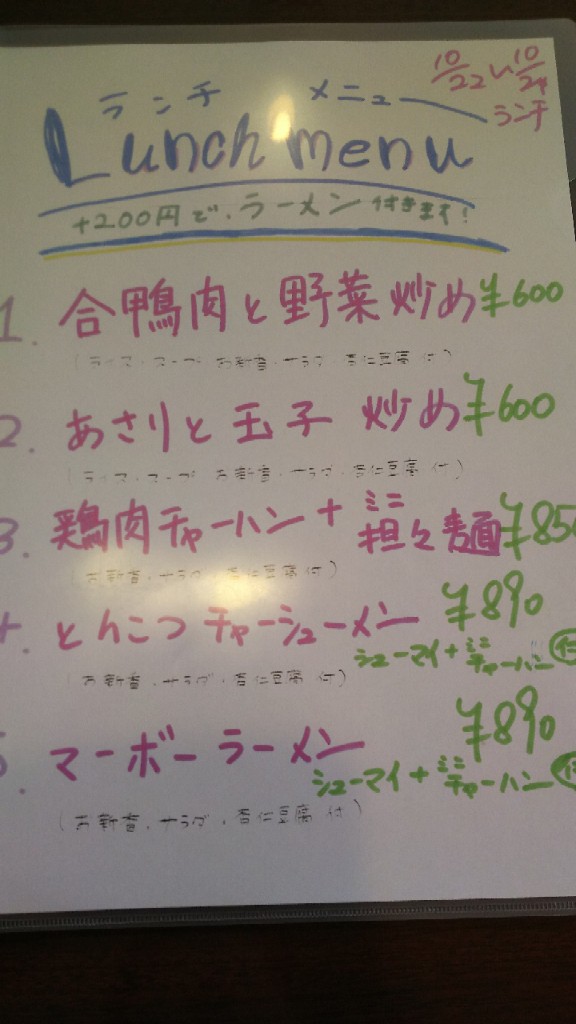 10/22〜10/24
ランチ メニュー
ランチ
Lunch menu
+200円で、ラーメン付きます!
1. 合鴨肉と野菜炒め ¥600
(ライス・スープ お新香・サラダ・杏仁豆腐 付)
2. あさりと玉子 炒め ¥600
(ライス・スープ お新香・サラダ・杏仁豆腐 付)
3. 鶏肉チャーハン+ミニ担々麺 ¥850
(お新香・サラダ・杏仁豆腐 付)
4. とんこつ チャーシューメン ¥890
シューマイ+ミニチャーハン 付
(お新香・サラダ・杏仁豆腐 付)
5. マーボー ラーメン ¥890
シューマイ+ミニチャーハン 付
(お新香・サラダ・杏仁豆腐 付)